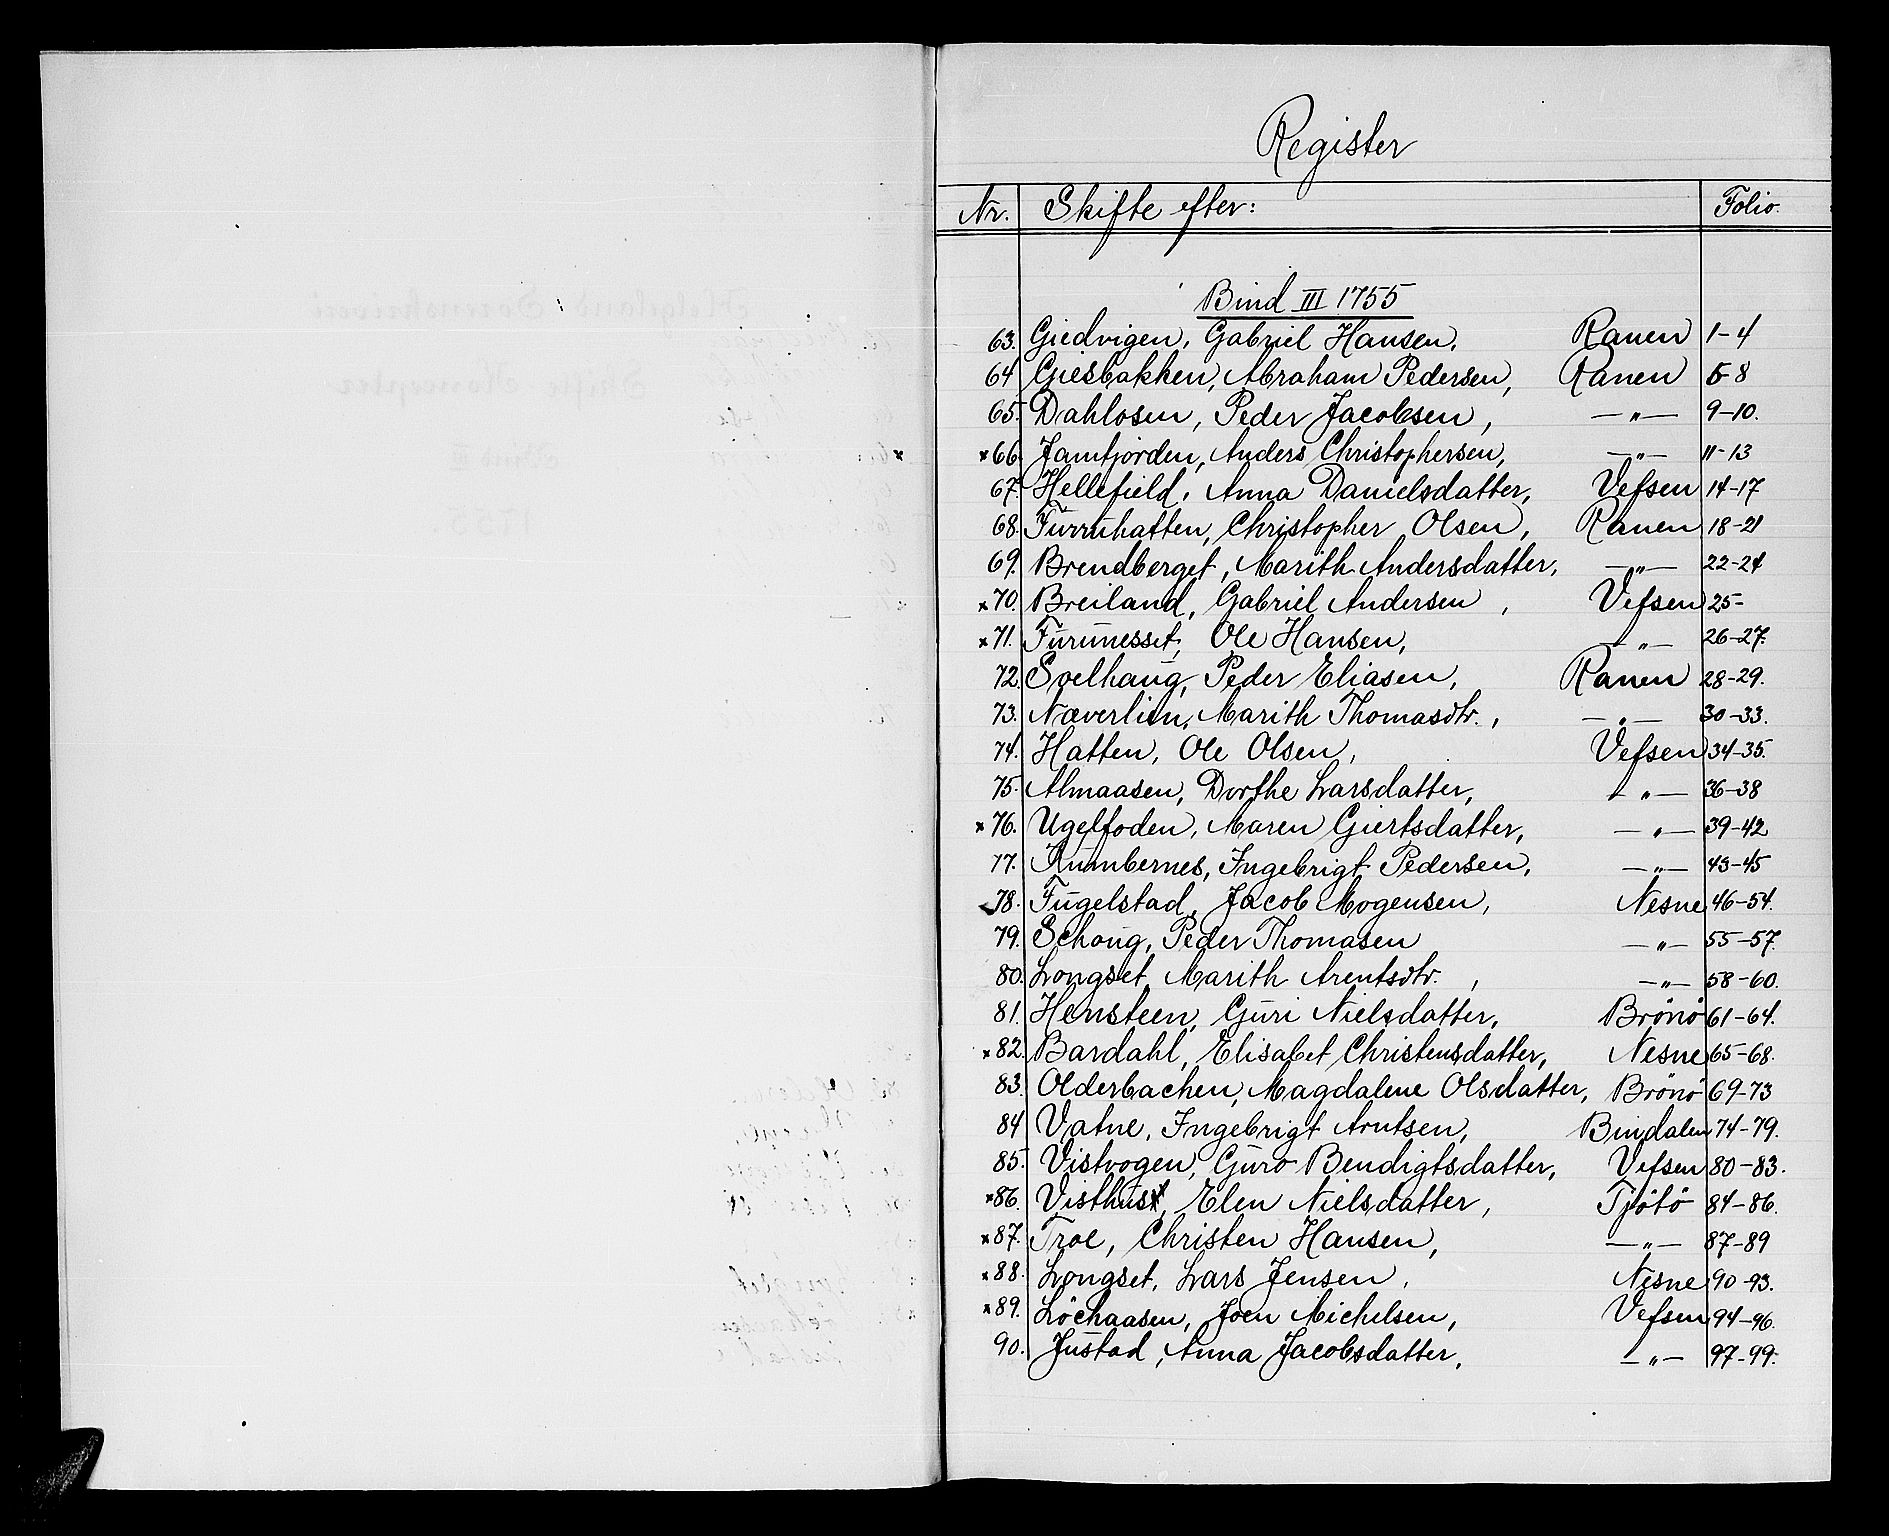 Register
Nr. Skifte efter: Folio.
Bind III 1755
63. Giedvigen, Gabriel Hansen, Ranen 1-4
64 Giesbakken, Abraham Pedersen, Ranen 5-8
65. Dahlosen, Peder Jacobsen, —"— 9-10.
x66. Jamfjorden, Anders Christophersen, —"— 11-13
67. Hellefield, Anna Danielsdatter, Vefsen 14-17
68. Furruhatten, Christopher Olsen, Ranen 18-21
69. Brendberget, Marith Andersdatter, —"— 22-24
x70. Breiland, Gabriel Andersen, Vefsen 25-
x71. Furunesset, Ole Hansen, —"— 26-27.
72. Svelhaug, Peder Eliasen, Ranen 28-29.
73. Næverlien, Marith Thomasdtr., —"— 30-33.
74. Hatten, Ole Olsen, Vefsen 34-35.
75. Almaasen, Dorthe Larsdatter, —"— 36-38
x76. Ugelfoden, Maren Giertsdatter, —"— 39-42
77. Kumbernes, Ingebrigt Pedersen, —"— 43-45
78. Fugelstad, Jacob Mogensen, Nesne 46-54.
79. Schoug, Peder Thomasen —"— 55-57.
80. Longset, Marith Arentsdtr., —"— 58-60.
81. Hensteen, Guri Nielsdatter, Brönö 61-64.
x82. Bardahl, Elisabet Christensdatter, Nesne 65-68.
83. Olderbachen, Magdalene Olsdatter, Brönö 69-73
84 Vatne, Ingebrigt Arntsen, Bindalen 74-79.
85. Vistvogen, Guro Bendigtsdatter, Vefsen 80-83.
x86. Visthus, Elen Nielsdatter, Tjötö 84-86.
x87. Troe, Christen Hansen, —"— 87-89
x88. Longset, Lars Jensen, Nesne 90-93.
x89. Löchaasen, Joen Michelsen, Vefsen 94-96.
90. Justad, Anna Jacobsdatter, —"— 97-99.